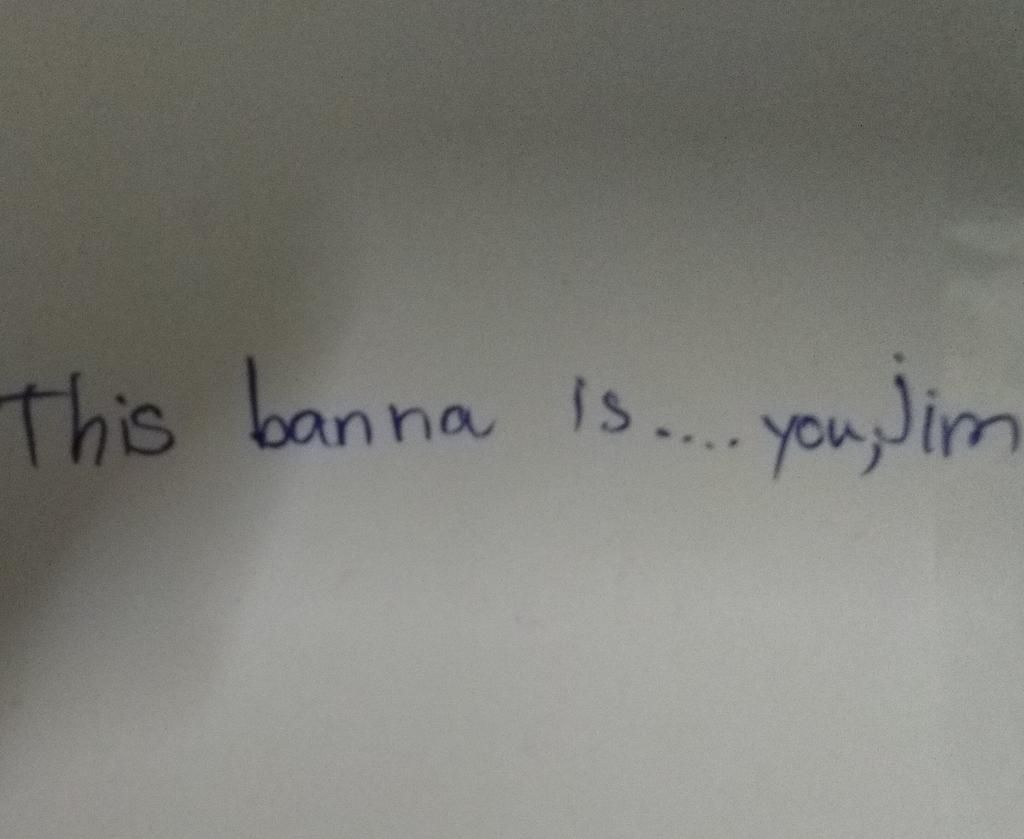 This banna is.... you, Jim